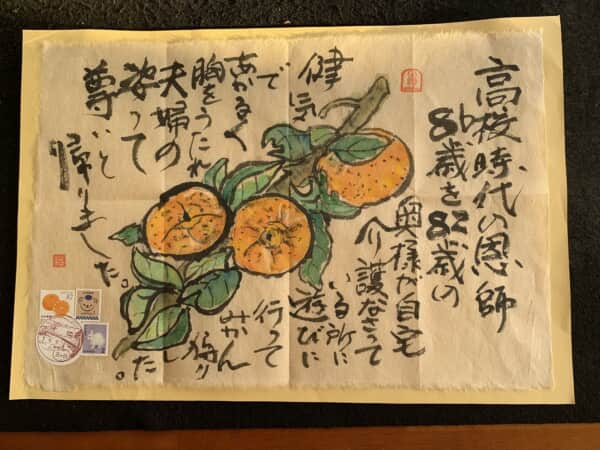 高校時代の恩師
86歳を82歳の
奥様が自宅
介護なさって
いる所に
遊びに
行って
みかん
狩り
した。
健気
で
あかるく
胸をうたれ
夫婦の
姿って
尊いと
帰りました。